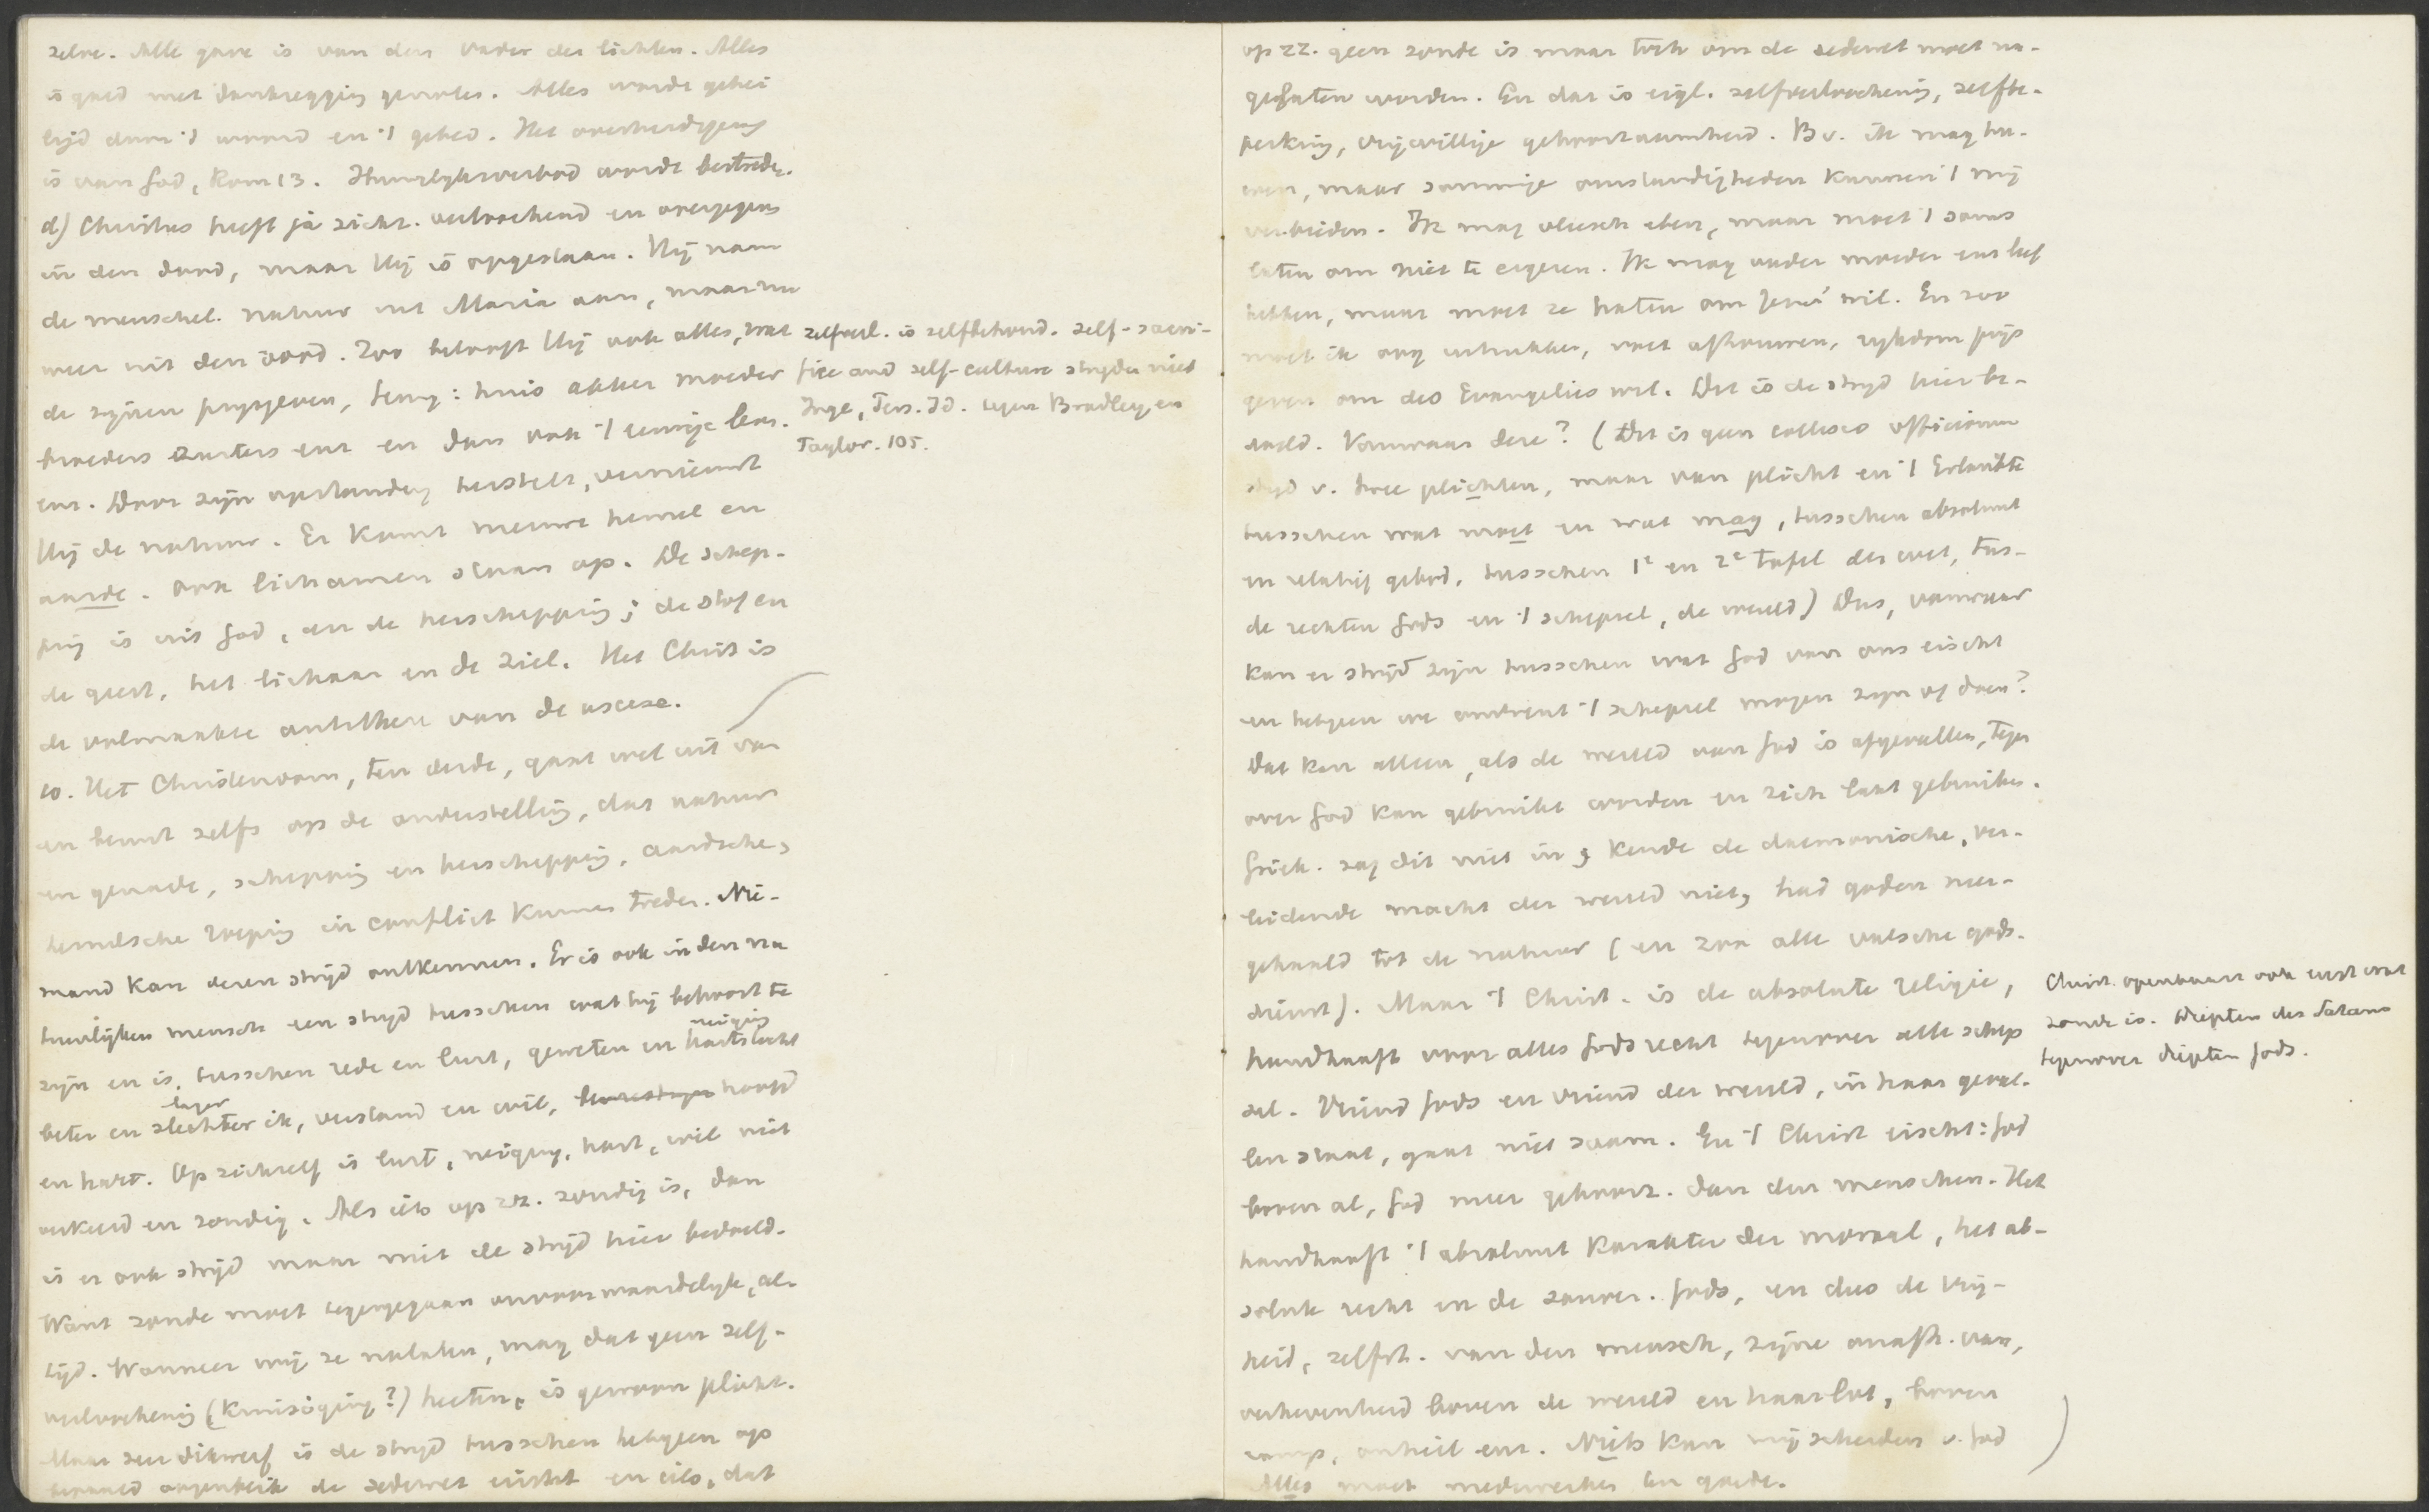 zelve. Alle gave is van den Vader der lichten. Alles
is goed met dankzegging genoten. Alles wordt gehei
ligd door 't woord en 't gebed. Het overheidsgezag
is van God, Rom 13. Huwlyksverbod wordt bestreden.
d) Christus heeft ja zichz. verloochend en overgegeven
in den dood, maar Hij is opgestaan. Hij nam
de menschel. natuur uit Maria aan, maar nu
weer uit den dood. Zoo belooft Hij ook alles, wat
de zijnen prijsgeven, terug: huis akker moeder
broeders zusters enz en dan ook 't eeuwige leven.
enz. Door zijn opstanding herstelt, vernieuwt
Hij de natuur. Er komt nieuwe hemel en
aarde. Ook lichamen staan op. De schep-
ping is uit God, en de herschepping; de stof en
de geest, het lichaam en de ziel. Het Christ is
de volmaakte antithese van de ascese.
zelfverl. is zelfbehoud. Self-sacri-
fice and self-culture stryden niet
Inge, Pers. Id. tegen Bradley en
Taylor. 105.
10. Het Christendom, ten derde, gaat wel uit van
en berust zelfs op de onderstelling, dat natuur
en genade, schepping en herschepping, aardsche,
hemelsche roeping in conflict kunnen treden. Nie-
mand kan dezen strijd ontkennen. Er is ook in den na
tuurlijken mensch een strijd tusschen wat hij behoort te
zijn en is, tusschen rede en lust, geweten en neiging hartstocht
beter en lager slechter ik, verstand en wil, hoofd
en hart. Op zichzelf is lust, neiging, hart, wil niet
verkeerd en zondig. Als iets op zz. zondig is, dan
is er ook strijd maar niet de strijd hier bedoeld.
Want zonde moet tegengegaan onvoorwaardelyk, al-
tijd. Wanneer wij ze nalaten, mag dat geen zelf-
verloochening (kruisiging?) heeten, is gewoon plicht.
Maar zeer dikwerf is de strijd tusschen hetgeen op
bepaald oogenblik de zedewet eischt en iets, dat
op zz. geen zonde is maar toch om de zedewet moet na-
gelaten worden. En dat is eigl. zelfverloochening, zelfbe-
perking, vrijwillige gehoorzaamheid. Bv. ik mag hu-
wen, maar sommige omstandigheden kunnen 't mij
verbieden. Ik mag vleesch eten, maar moet 't soms
laten om niet te ergeren. Ik mag vader moeder enz lief
hebben, maar moet ze haten om Jezus' wil. En zoo
moet ik oog uitrukken, voet afhouwen, rykdom prijs
geven om des Evangelies wil. Dit is de strijd hier be-
doeld. Vanwaar deze? (Dit is geen collisio officiorum
strijd v. twee plichten, maar van plicht en 't Erlaubte
tusschen wat moet en wat mag, tusschen absoluut
en relatief gebod, tusschen 1e en 2e tafel der wet, tus-
de rechten Gods en 't schepsel, de wereld) Dus, vanwaar
kan er strijd zijn tusschen wat God van ons eischt
en hetgeen we omtrent 't schepsel mogen zijn of doen?
Dat kan alleen, als de wereld van God is afgevallen, tegen
over God kan gebruikt worden en zich laat gebruiken.
Griek. zag dit niet in, kende de daemonische, ver-
leidende macht der wereld niet, had goden neer-
gehaald tot de natuur (en zoo alle valsche gods-
dienst). Maar 't Christ. is de absolute religie,
handhaaft voor alles Gods recht tegenover alle schep
sel. Vriend Gods en vriend der wereld, in haar geval-
len staat, gaat niet saam. En 't Christ eischt: God
boven al, God meer gehoorz. dan den menschen. Het
handhaaft 't absoluut karakter der moraal, het ab-
solute recht en de souver. Gods, en dus de vrij-
heid, zelfst. van den mensch, zijne onafh. van,
verhevenheid boven de wereld en haar lot, boven
ramp, onheil enz. Niets kan mij scheiden v. God
Alles moet medewerken ten goede.
Christ. openbaart ook eerst wat
zonde is. Diepten des Satans
tegenover diepten Gods.